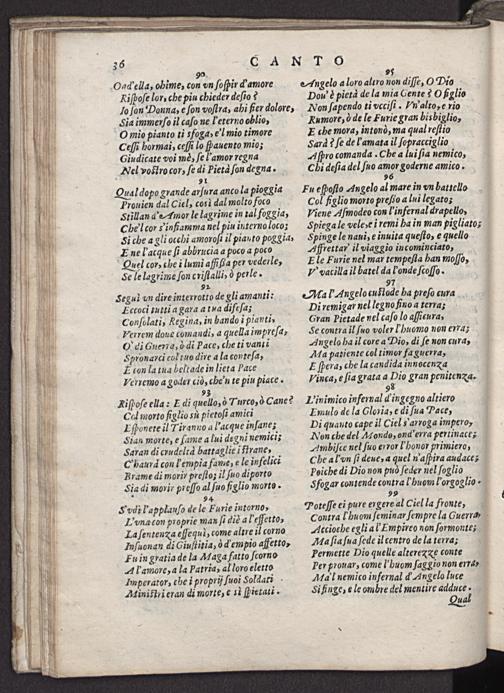 36 CANTO
90
Ond'ella, ohime, con vn sospir d'amore
Rispose lor, che piu chieder deßio?
Io son Donna, e son vostra, ahi fier dolore,
Sia immerso il caso ne l'eterno oblio,
O mio pianto ti sfoga, e'l mio timore
Ceßi hormai, ceßi lo spauento mio;
Giudicate voi mè, se l'amor regna
Nel vostro cor, se di Pietà son degna.
91
Qual dopo grande arsura anco la pioggia
Prouien dal Ciel, così dal molto foco
Stillan d'Amor le lagrime in tal foggia,
Che'l cor s'infiamma nel piu interno loco;
Si che a gli occhi amorosi il pianto poggia,
E ne l'acque si abbrucia a poco a poco
Quel cor, che i lumi affissa per vederle,
Se le lagrime son cristalli, ò perle.
92
Seguì vn dire interrotto de gli amanti:
Eccoci tutti a gara a tua difesa;
Consolati, Regina, in bando i pianti,
Verrem doue comandi, a quella impresa,
O' di Guerra, ò di Pace, che ti vanti
Spronarci col tuo dire a la contesa,
E con la tua beltade in lieta Pace
Verremo a goder ciò, che'n te piu piace.
93
Rispose ella: E di quello, ò Turco, ò Cane?
Col morto figlio sù pietosi amici
Esponete il Tiranno a l'acque insane;
Stian morte, e fame a lui degni nemici;
Saran di crudeltà battaglie istrane,
C'haurà con l'empia fame, e le infelici
Brame di morir presto; il suo diporto
Sia di morir presso al suo figlio morto.
94
S'vdì l'applauso de le Furie intorno,
L'vna con proprie man si diè a l'effetto,
La sentenza essequì, come altre il corno
Insuonan di Giustitia, ò d'empio affetto,
Fu in gratia de la Maga fatto scorno
A l'amore, a la Patria, al loro eletto
Imperator, che i proprij suoi Soldati
Ministri eran di morte, e sì spietati.
95
Angelo a loro altro non disse, O Dio
Dou'è pietà de la mia Gente? O figlio
Non sapendo ti vccisi. Vn'alto, e rio
Rumore, ò de le Furie gran bisbiglio,
E che mora, intonò, ma qual restio
Sarà? se de l'amata il sopracciglio
Aspro comanda. Che a lui sia nemico,
Chi desia del suo amor goderne amico.
96
Fu esposto Angelo al mare in vn battello
Col figlio morto presso a lui legato;
Viene Asmodeo con l'infernal drapello,
Spiega le vele, e i remi ha in man pigliato;
Spinge le naui, e inuita questo, e quello
Affrettar' il viaggio incominciato,
E le Furie nel mar tempesta han mosso,
V'vacilla il batel da l'onde scosso.
97
Ma l'Angelo custode ha preso cura
Di remigar nel legno fino a terra;
Gran Pietade nel caso lo assicura,
Se contra il suo voler l'huomo non erra;
Angelo ha il core a Dio, di se non cura,
Ma patiente col timor fa guerra,
E spera, che la candida innocenza
Vinca, e sia grata a Dio gran penitenza.
98
L'inimico infernal d'ingegno altiero
Emulo de la Gloria, e di sua Pace,
Di quanto cape il Ciel s'arroga impero,
Non che del Mondo, ond'erra pertinace;
Ambisce nel suo error l'honor primiero,
Che a l'vn si deue, a quel n'aspira audace;
Poiche di Dio non può seder nel soglio
Sfogar contende contra l'huom l'orgoglio.
99
Potesse ei pure ergere al Ciel la fronte,
Contra l'huom seminar sempre la Guerra,
Accioche egli a l'Empireo non sormonte;
Ma sia sua sede il centro de la terra;
Permette Dio quelle alterezze conte
Per prouar, come l'huom saggio non erra,
Ma'l nemico infernal d'Angelo luce
Si finge, e le ombre del mentire adduce.
Qual